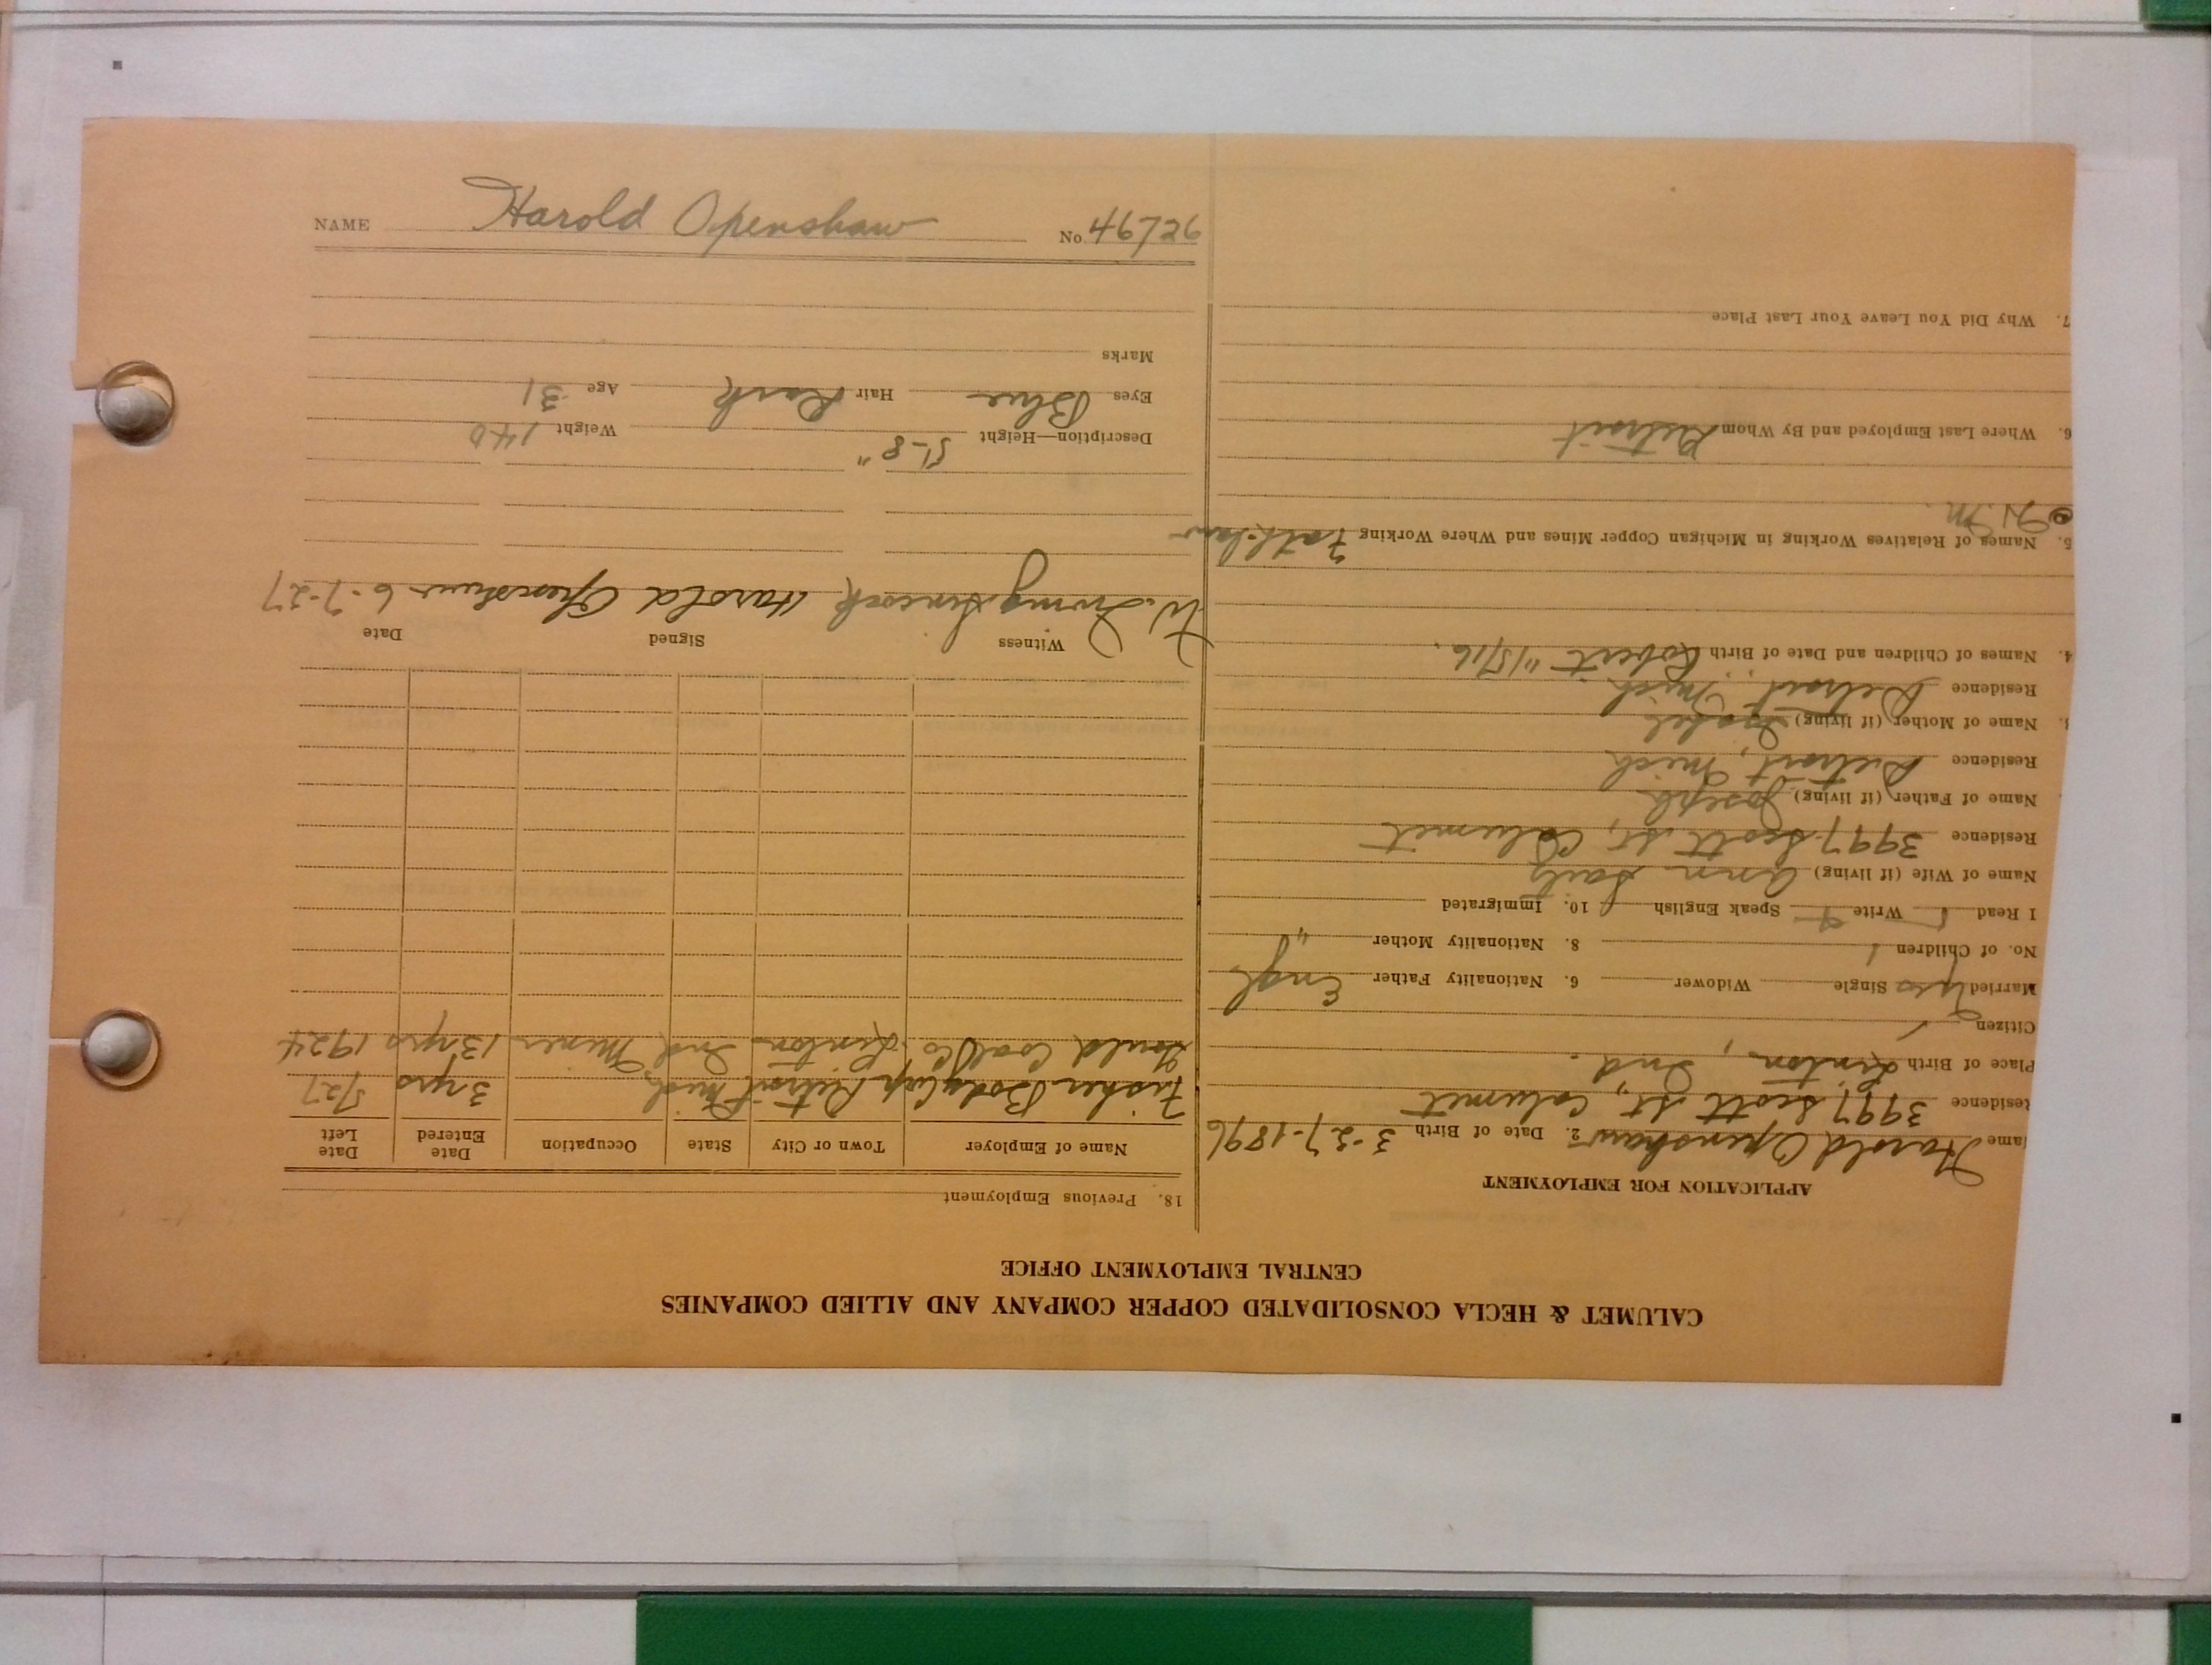 NAME Harold Openshaw No. 46726
CALUMET & HECLA CONSOLIDATED COPPER COMPANY AND ALLIED COMPANIES
CENTRAL EMPLOYMENT OFFICE
APPLICATION FOR EMPLOYMENT
ame Harold Openshaw 2. Date of Birth 3-27-1896
Residence 3997 Scott St, Calumet
Place of Birth Linton, Ind.
Citizen
Married yes Single Widower 6. Nationality Father Engl
No. of Children 1 8. Nationality Mother "
I Read Write Speak English 10. Immigrated
Name of Wife (if living) Ann
Residence 3997 Scott St, Calumet
Name of Father (if living) Joseph
Residence Detroit, Mich
Name of Mother (if living)
Residence Detroit, Mich
4. Names of Children and Date of Birth Robert 11/5/16.
5. Names of Relatives Working in Michigan Copper Mines and Where Working Fath-law
6. Where Last Employed and By Whom Detroit
7. Why Did You Leave Your Last Place
18. Previous Employment
Name of Employer Town or City State Occupation Date Entered Date Left
Fisher Body Corp Detroit Mich 3 yrs 5/27
Gould Coal Co. Linton Ind Miner 13 yrs 1924
Witness Signed Date
W. Irving Harold Openshaw 6-7-27
Description—Height 5'-8" Weight 140
Eyes Blue Hair Dark Age 31
Marks